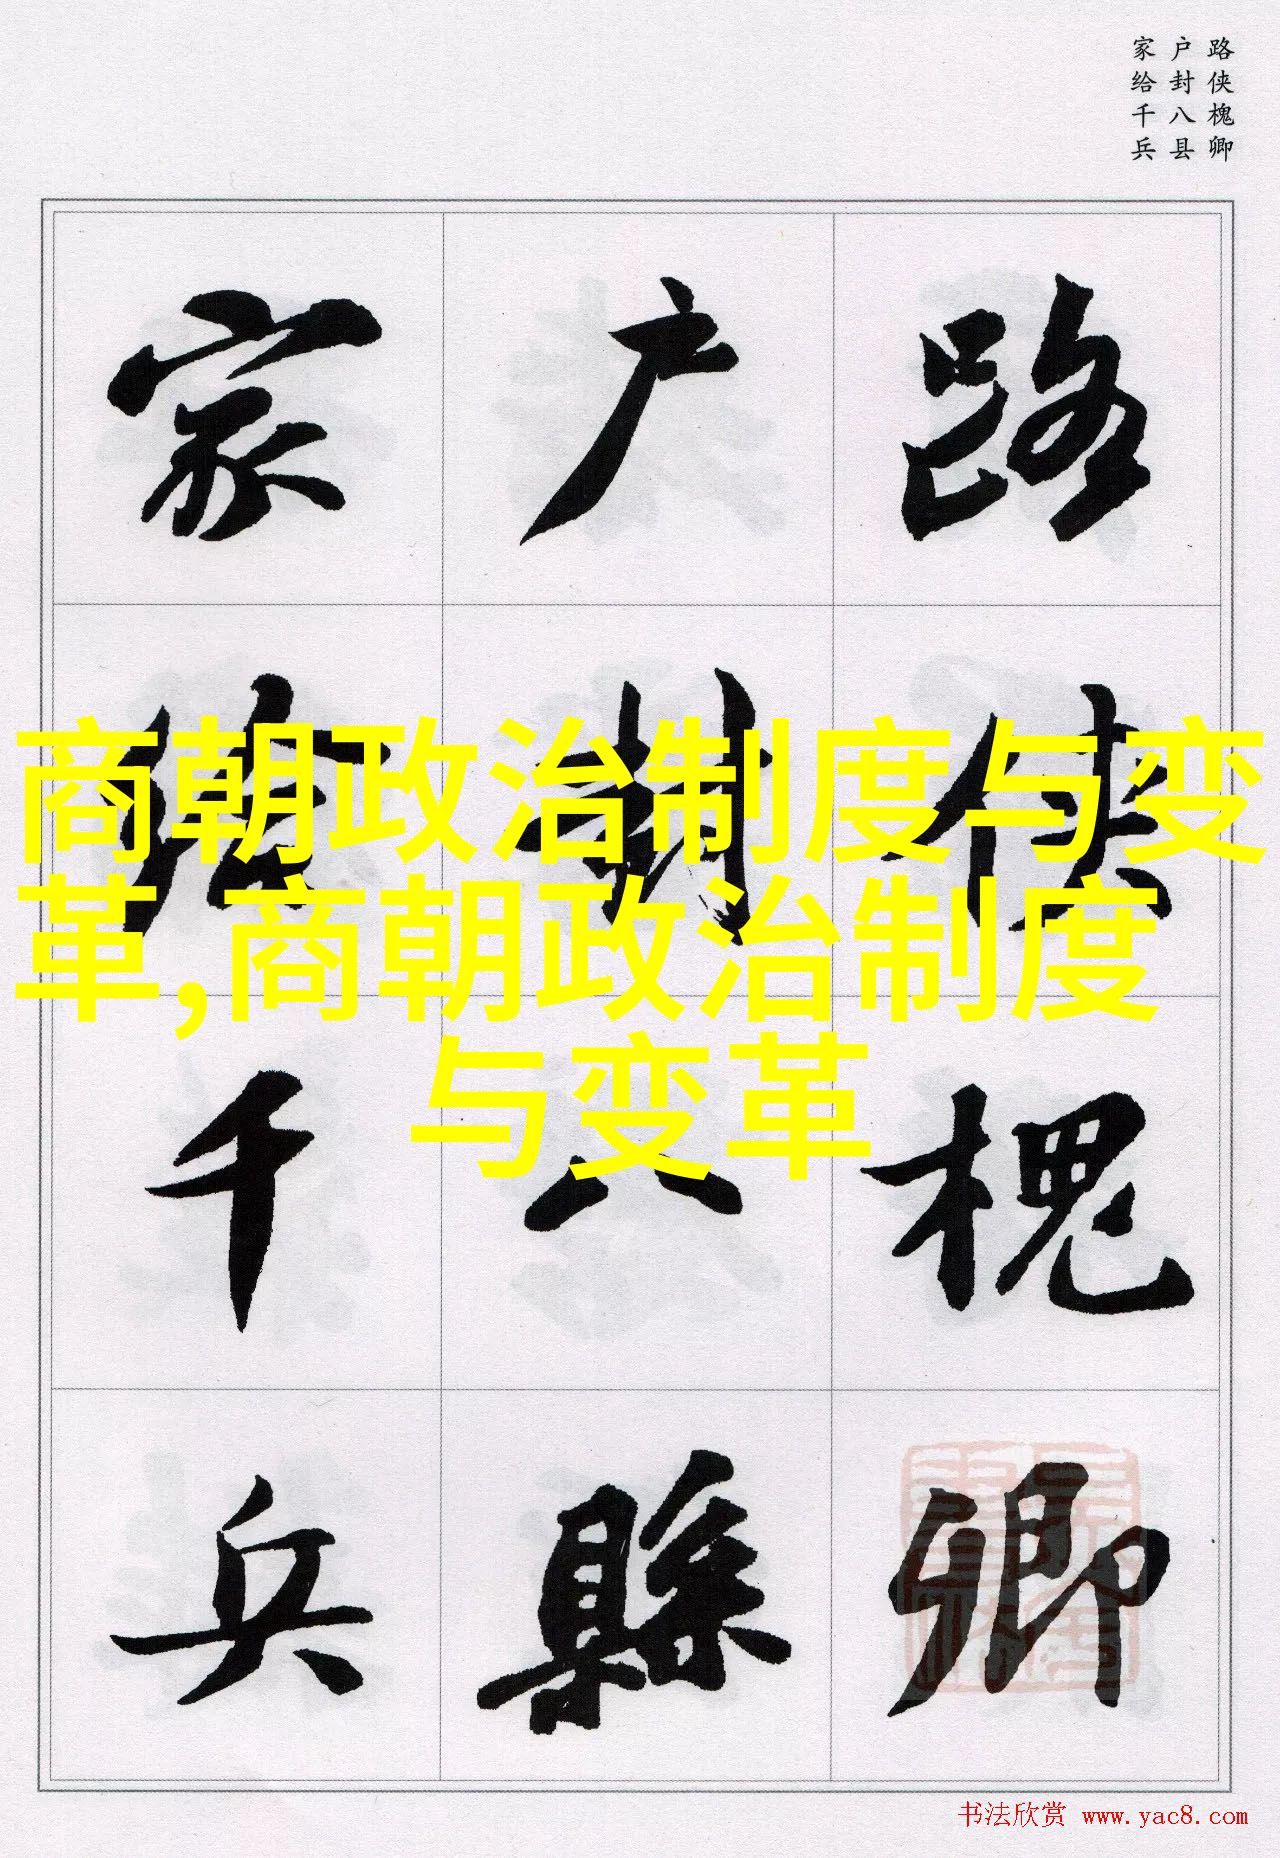 路侠槐卿
户封八县
家给千兵
路侠槐卿
户封八縣
家给千兵
商朝政治制度与变
革,商朝政治制度
与变革
书法欣赏 www.yac8.com